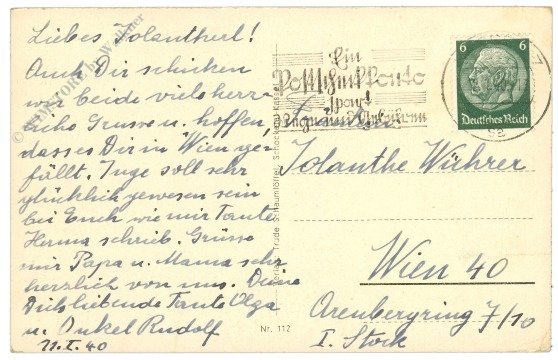 Liebes Jolantherl!
Auch Dir schicken
wir beide viels herz-
liche Grüsse u. hoffen,
dass es Dir in Wien ge-
fällt. Inge soll sehr
glücklich gewesen sein
bei Euch wie mir Tante
Herma schrieb. Grüsse
mir Papa u. Mama sehr
herzlich von uns. Deine
Dich liebende Tante Olga
u. Onkel Rudolf
11.X.40
Ein
Postscheckkonto
spart
6 6
Deutsches Reich
Jolanthe Wührer
Wien 40
Arenbergring 7/10
I. Stock
Verlag Trude Schaumlöffel, Schocken, Kassel
Nr. 112